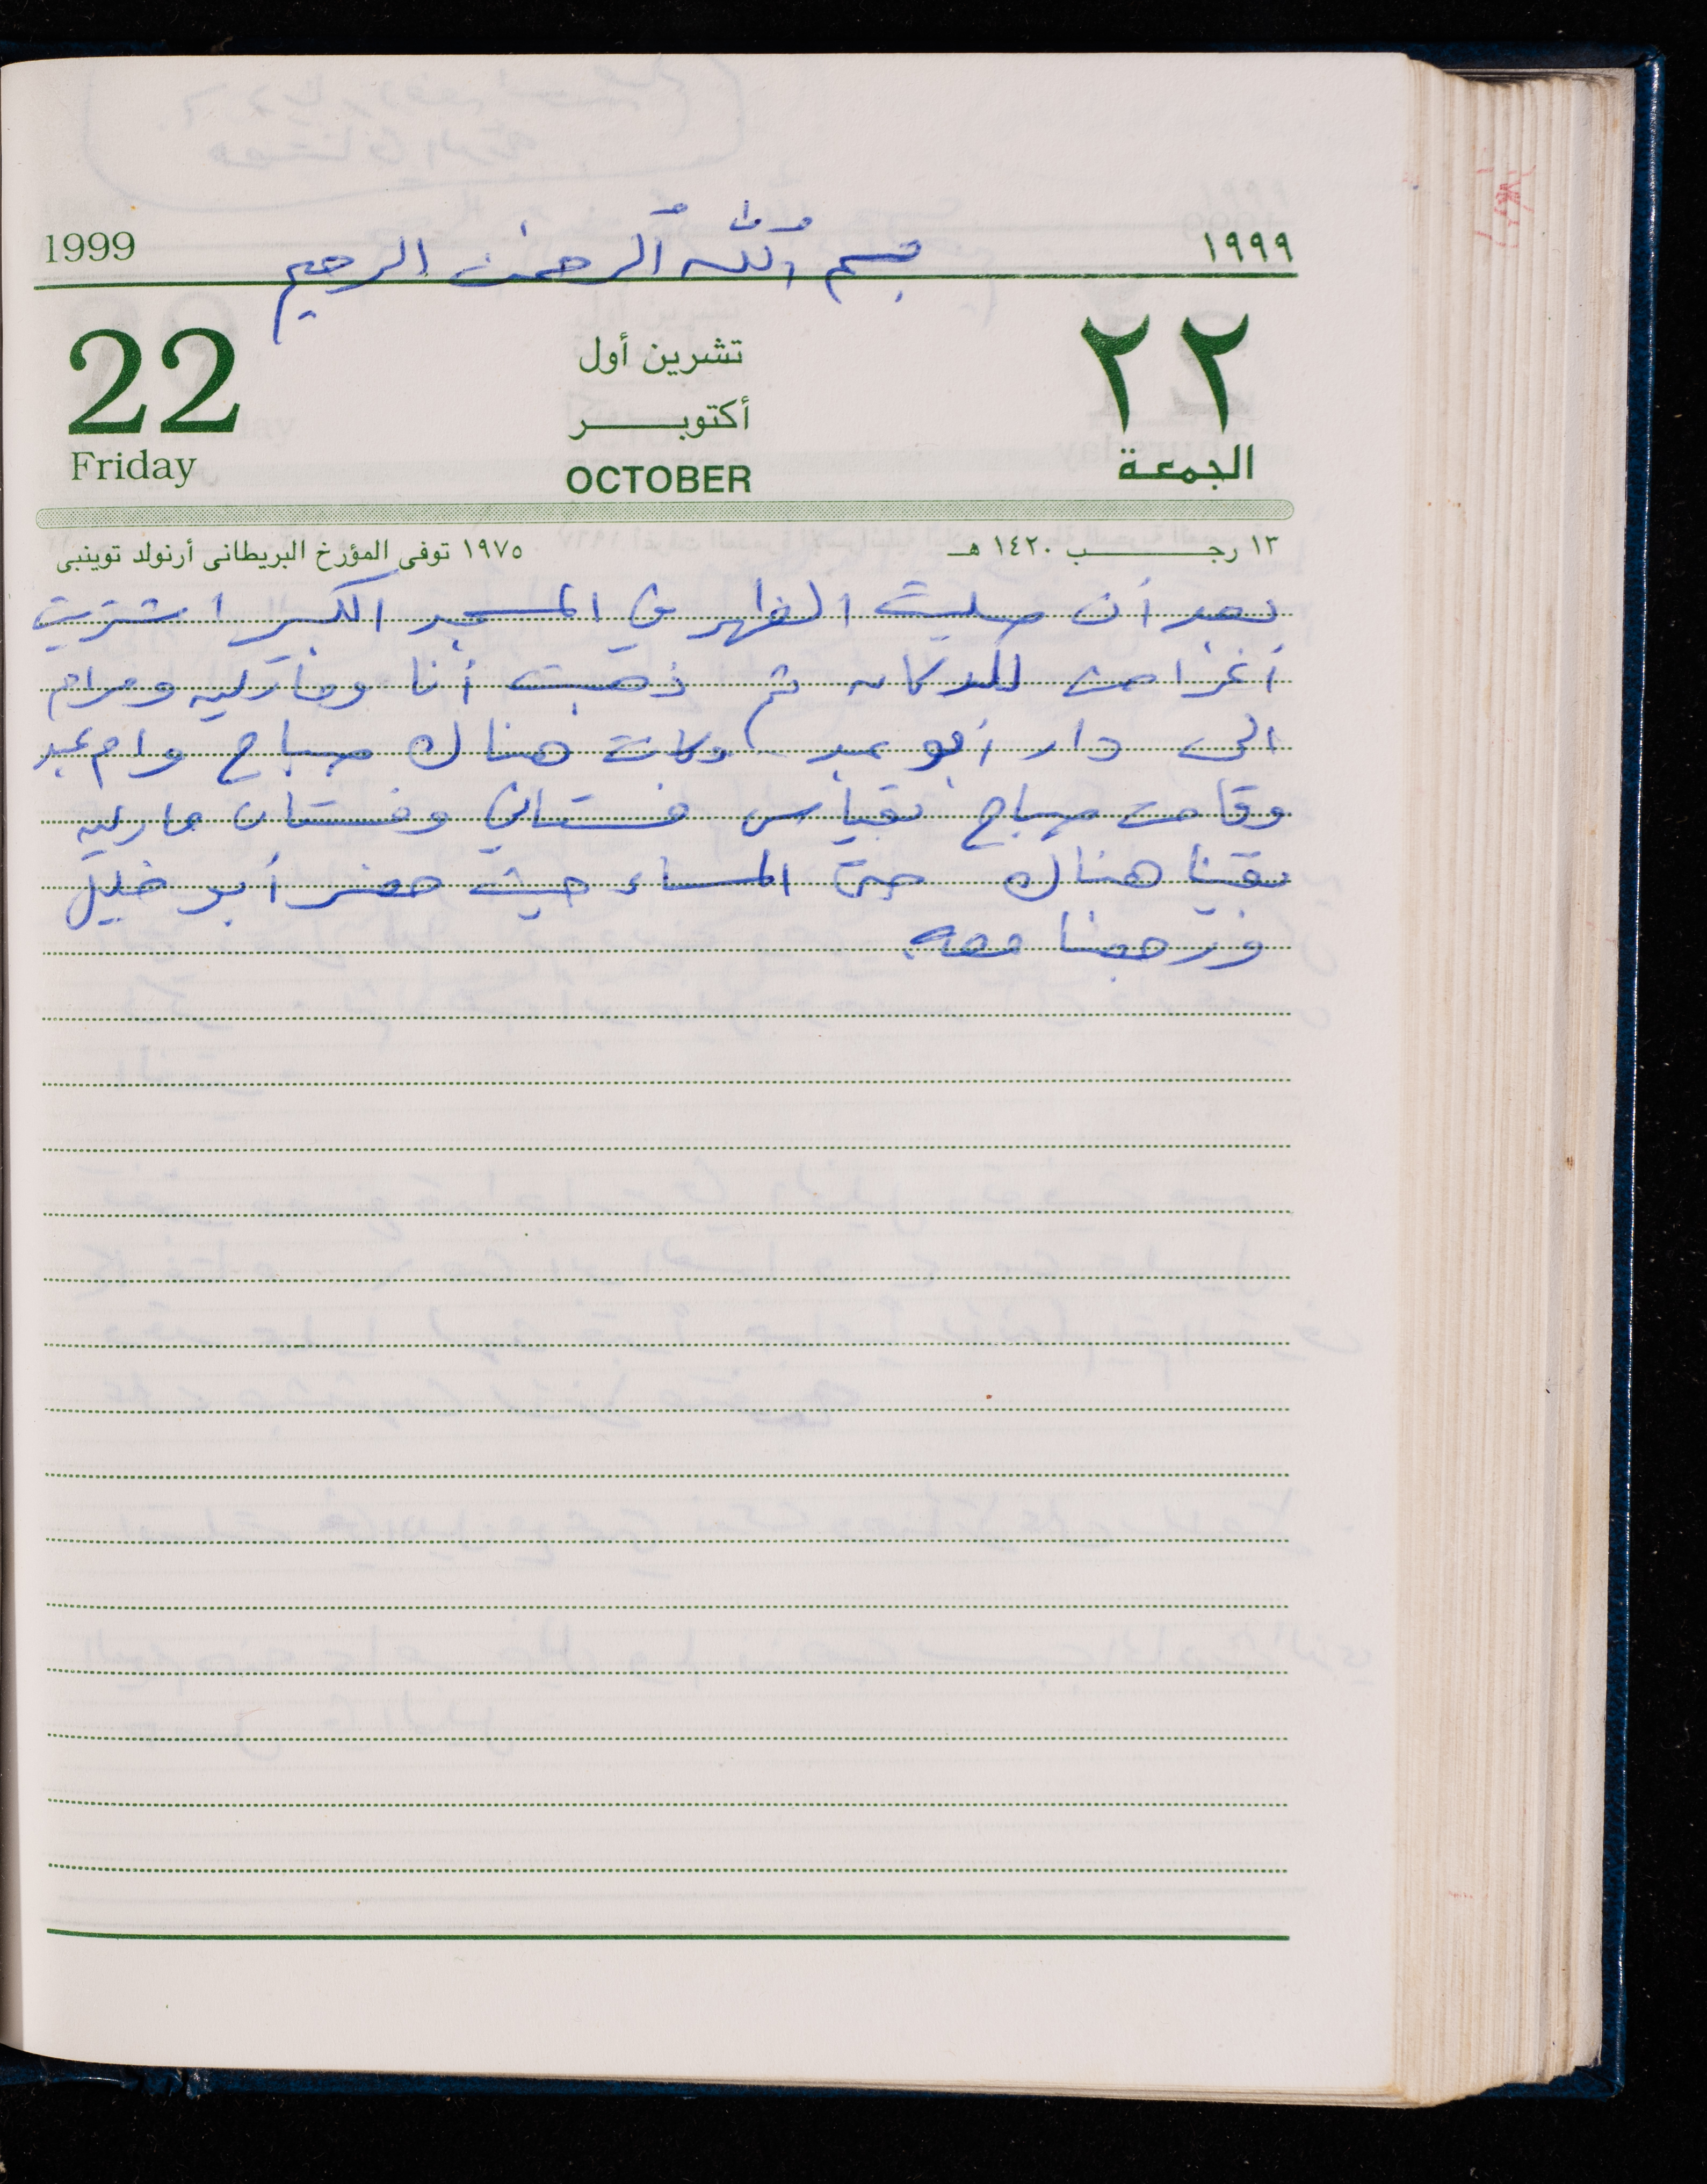 1999
١٩٩٩
بسم الله الرحمن الرحيم
22
تشرين أول
٢٢
أكتوبـــر
Friday
OCTOBER
الجمعة
١٣ رجـــب ١٤٢٠ هـ
١٩٧٥ توفى المؤرخ البريطانى أرنولد توينبى
بعد أن صليت الظهر في المسجد الكبير اشتريت
أغراض للدكان ثم ذهبت أنا ومارليه ومرام
الى دار أبو عبد وكانت هناك صباح وام عبد
وقامت صباح بقياس فستاني وفستان مارليه
بقينا هناك حتى المساء حيث حضر أبو خليل
ورجعنا معه.